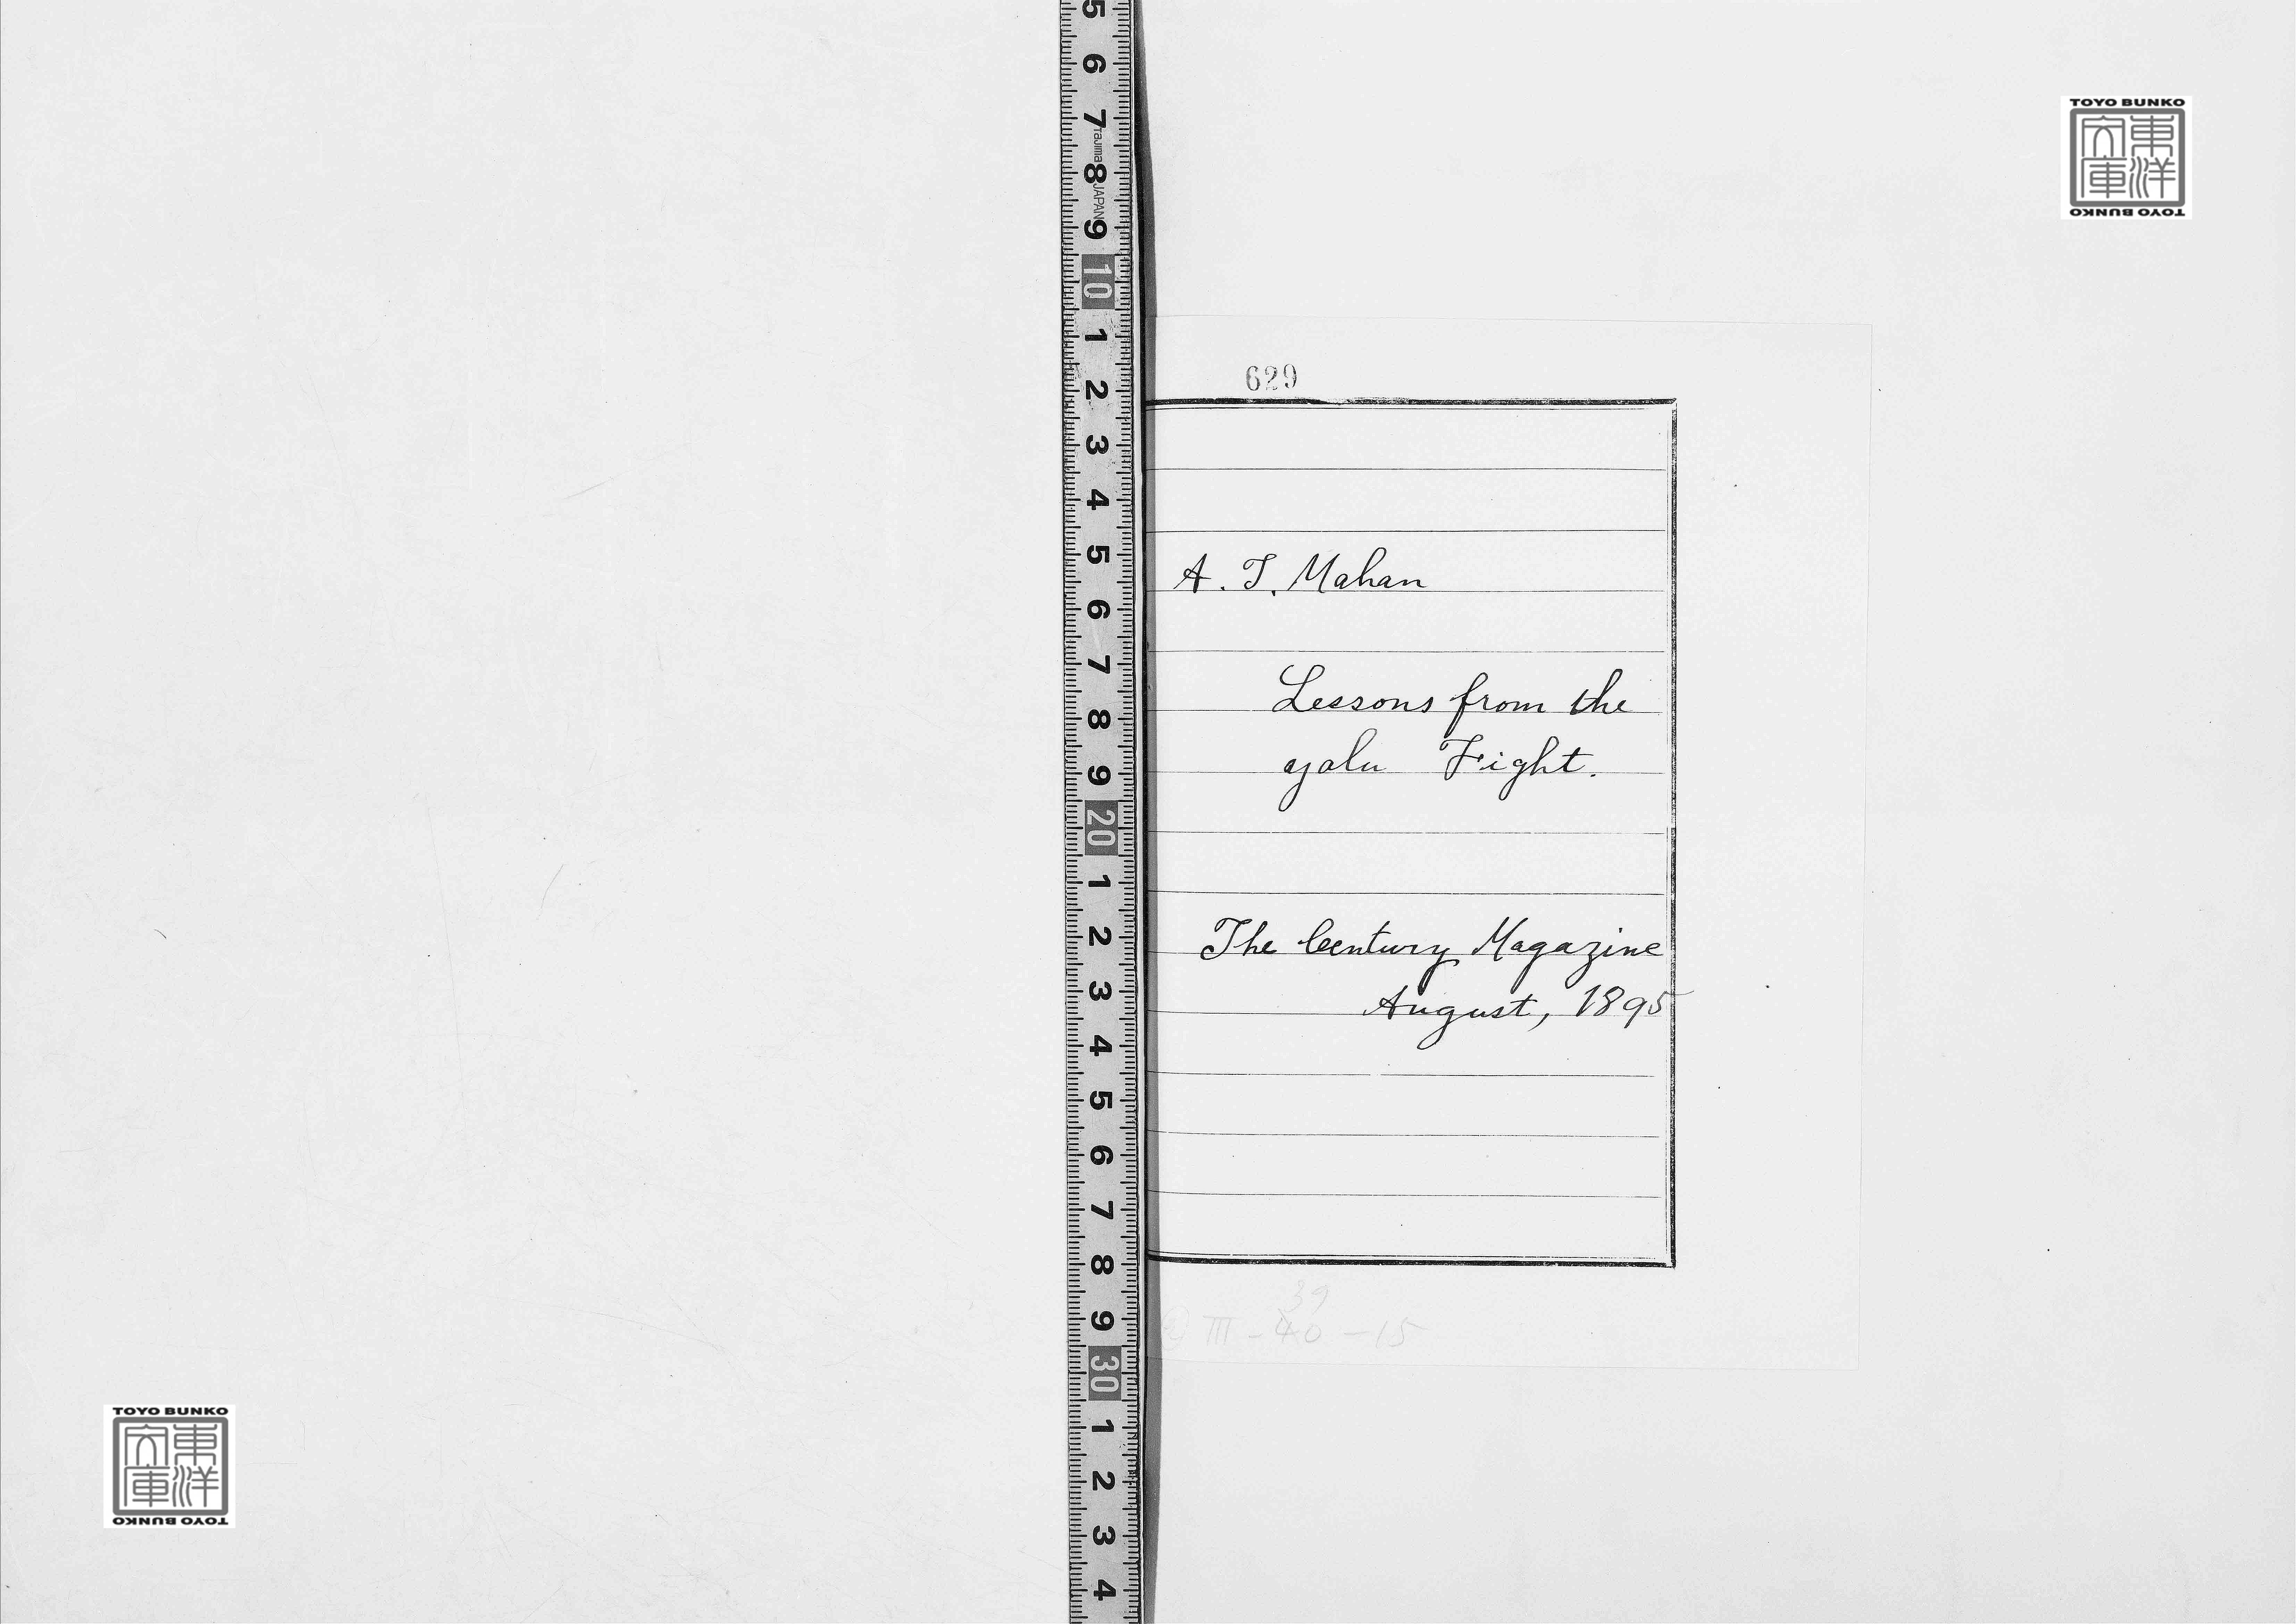 TOYO BUNKO
東洋文庫
TOYO BUNKO
629
A. T. Mahan
Lessons from the
yalu Fight.
The Century Magazine
August, 1895
39
III - 40 - 15
5 6 7 8 9 10 1 2 3 4 5 6 7 8 9 20 1 2 3 4 5 6 7 8 9 30 1 2 3 4
Tajima JAPAN
TOYO BUNKO
東洋文庫
TOYO BUNKO